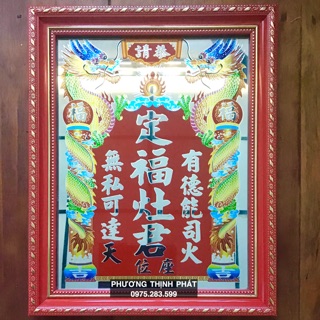 請
福
福
有德能司火
定福灶君
座位
無私可達天
PHƯƠNG THỊNH PHÁT
0975.283.599